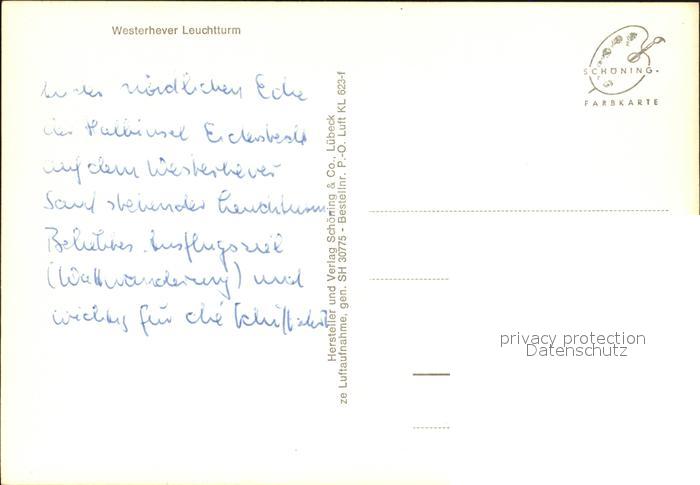 Westerhever Leuchtturm
SCHÖNING-
FARBKARTE
In der nördlichen Ecke
der Halbinsel Eiderstedt
auf dem Westerhever
Sand stehender Leuchtturm
Beliebtes Ausflugsziel
(Wattwanderung) und
wichtig für die Schiffahrt
Hersteller und Verlag Schöning & Co., Lübeck
ze Luftaufnahme, gen. SH 30775 - Bestellnr. P.-O. Luft KL 623-f
privacy protection
Datenschutz